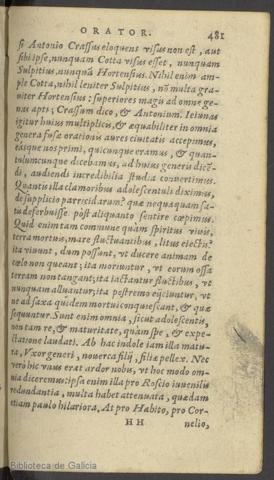 ORATOR. 481
si Antonio Crassus eloquens visus non est, aut
sibi ipse, nunquam Cotta visus esset, nunquam
Sulpitius, nunquã Hortensius. Nihil enim am-
ple Cotta, nihil leniter Sulpitius, nõ multa gra-
uiter Hortensius: superiores magis ad omne ge-
nus apti; Crassum dico, & Antonium. Ieiunas
igitur huius multiplicis, & æquabiliter in omnia
genera fusæ orationis aures ciuitatis accepimus,
easque nos primi, quicunque eramus, & quan-
tulumcunque dicebamus, ad huius generis dicẽ-
di, audiendi incredibilia studia conuertimus.
Quantis illa clamoribus adolescentuli diximus,
de supplicio patricidarum? quæ nequaquam sa-
tis deferbuisse pòst aliquanto sentire cœpimus.
Quid enim tam commune quàm spiritus viuis,
terra mortuis, mare fluctuantibus, litus eiectis?
ita viuunt, dum possunt, vt ducere animam de
cœlo non queant; ita moriuntur, vt eorum ossa
terram non tangant; ita iactantur fluctibus, vt
nunquam alluantur; ita postremò eijciuntur, vt
ne ad saxa quidem mortui conquiescant, & quæ
sequuntur. Sunt enim omnia, sicut adolescentis,
non tam re, & maturitate, quàm spe, & expe-
ctatione laudati. Ab hac indole iam illa matu-
ra, Vxor generi, nouerca filij, filiæ pellex. Nec
verò hic vnus erat ardor nobis, vt hoc modo om-
nia diceremus: ipsa enim illa pro Roscio iuuenilis
redundantia, multa habet attenuata, quædam
etiam paulo hilariora, At pro Habito, pro Cor-
HH nelio,
Biblioteca de Galicia